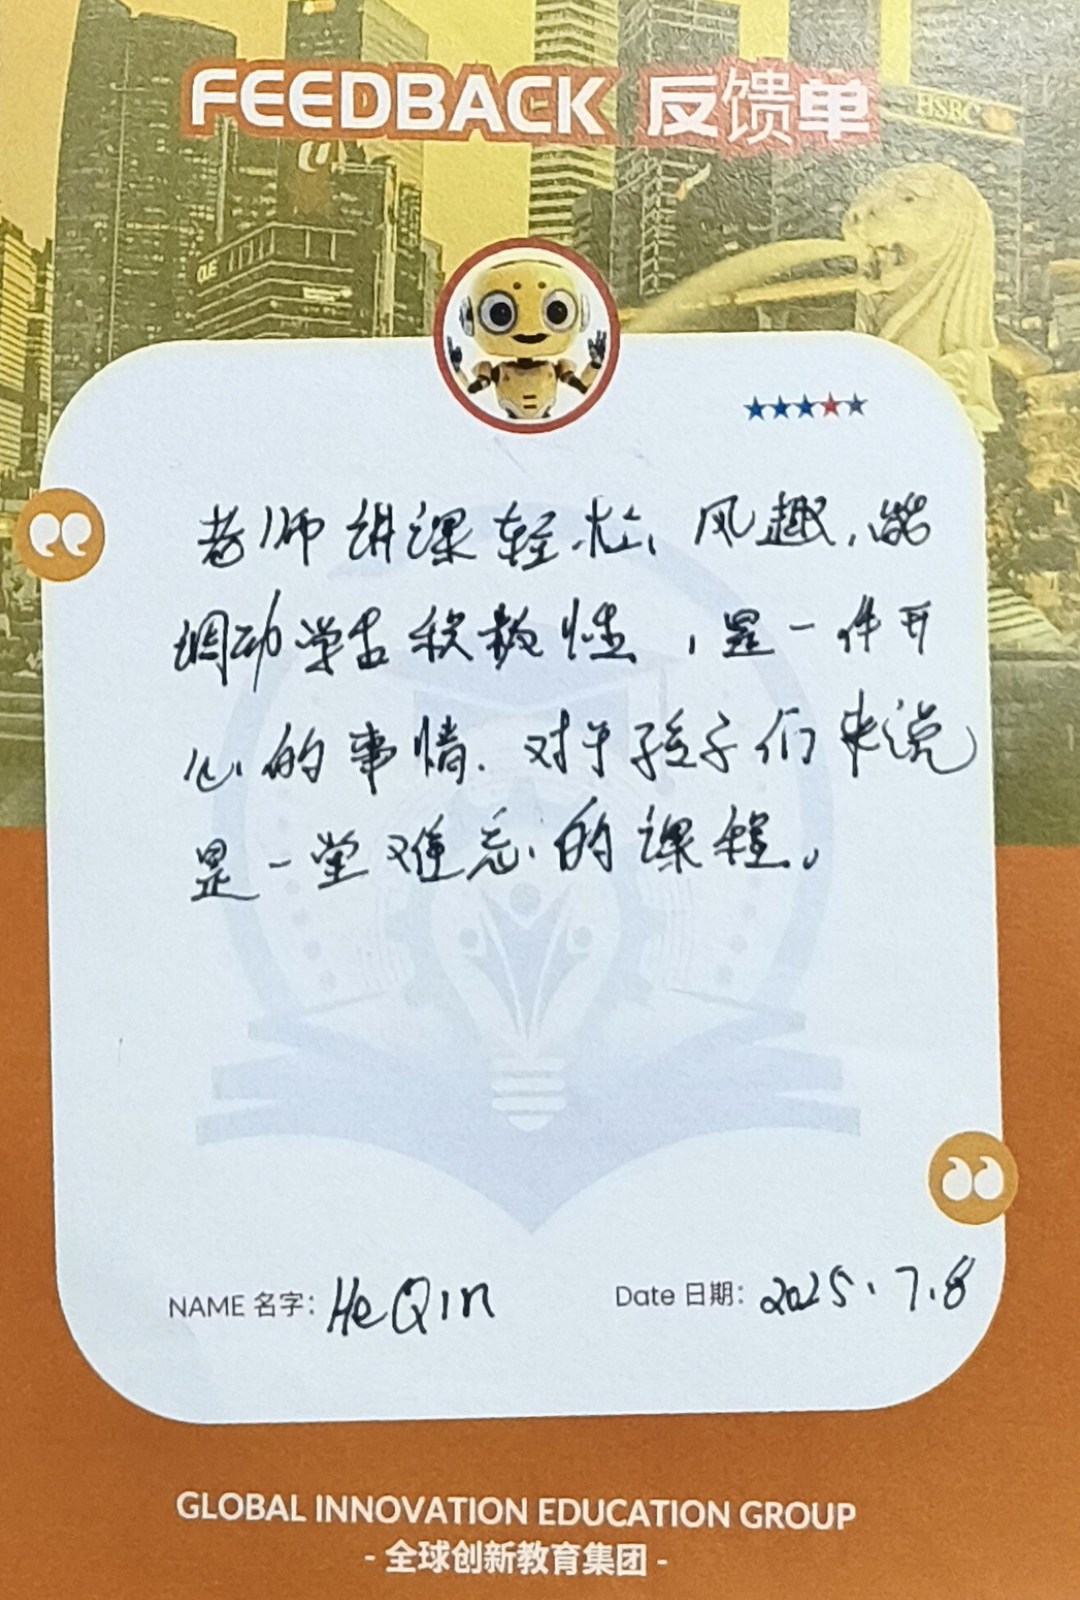 FEEDBACK 反馈单
HSBC
OUE
老师讲课轻松、风趣,能
调动学生积极性,是一件开
心的事情.对于孩子们来说
是一堂难忘的课程。
NAME 名字: He Qin
Date 日期: 2025.7.8
GLOBAL INNOVATION EDUCATION GROUP
- 全球创新教育集团 -